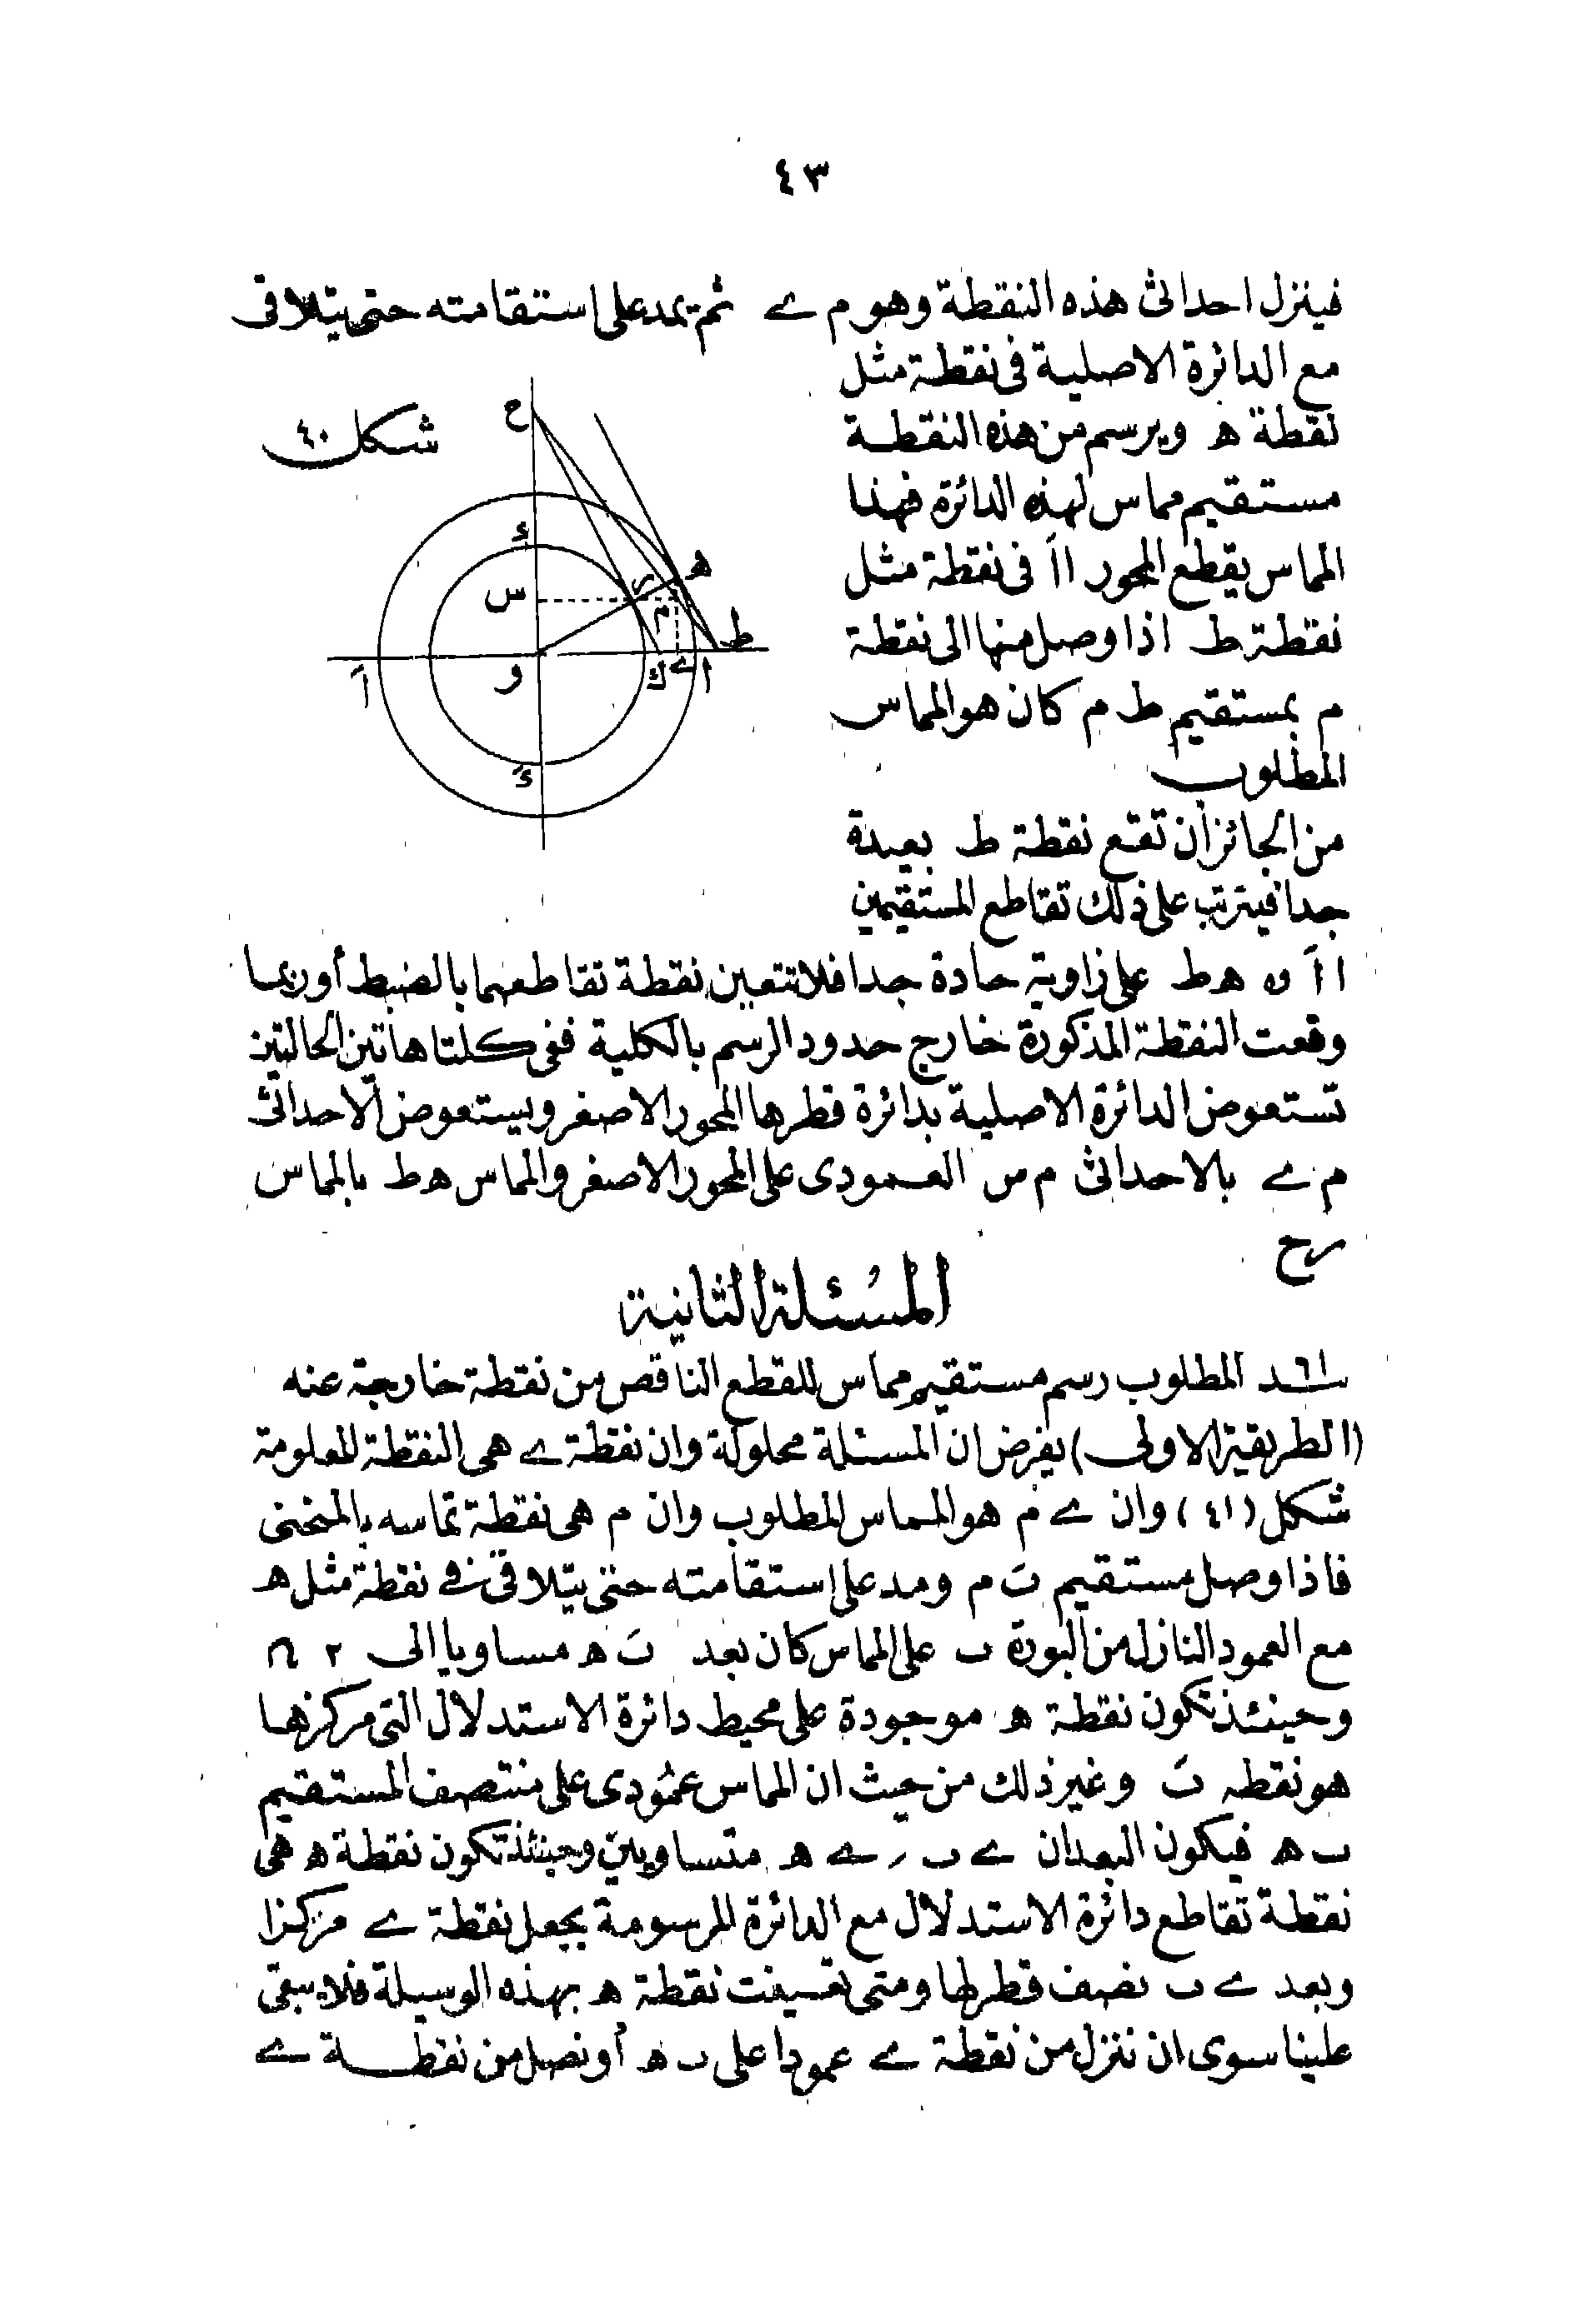 ٤٣
فينزل احداثى هذه النقطة وهو م ے ثم يمد على استقامته حتى يتلاقى
مع الدائرة الاصلية فى نقطة مثل
نقطة ه ويرسم من هذه النقطة
مستقيم مماس لهذه الدائرة فهذا
المماس يقطع المحور ااَ فى نقطة مثل
نقطة ط اذا وصل منها الى نقطة
م بمستقيم ط م كان هو المماس
المطلوب
شكل ٤٠
ح
ء
ه
س
ر
م
ط
اَ
و
ك
ے
ا
ءَ
من الجائز أن تقع نقطة ط بعيدة
جدا فيترتب على ذلك تقاطع المستقيمين
ااَ و ه ط على زاوية حادة جدا فلا تتعين نقطة تقاطعهما بالضبط أو ربما
وقعت النقطة المذكورة خارج حدود الرسم بالكلية ففى كلتا هاتين الحالتين
تستعوض الدائرة الاصلية بدائرة قطرها المحور الاصغر ويستعوض الاحداثى
م ے بالاحداثى م س العمودى على المحور الاصغر والمماس ه ط بالمماس
ر ح
المسئلة الثانية
المطلوب رسم مستقيم مماس للقطع الناقص من نقطة خارجة عنه
(الطريقة الاولى) يفرض ان المسئلة محلولة وان نقطة ے هى النقطة المعلومة
شكل (٤١) وان ے م هو المماس المطلوب وان م هى نقطة تماسه بالمنحنى
فاذا وصل مستقيم ںَ م ومد على استقامته حتى يتلاقى فے نقطة مثل ه
مع العمود النازل من البورة ں على المماس كان بعد ںَ ه مساويا الى ٢
وحينئذ تكون نقطة ه موجودة على محيط دائرة الاستدلال التى مركزها
هو نقطه ںَ وغير ذلك من حيث ان المماس عمودى على منتصف المستقيم
ں ه فيكون البعدان ے ں ر ے ه متساويين وحينئذ تكون نقطة ه هى
نقطة تقاطع دائرة الاستدلال مع الدائرة المرسومة بجعل نقطة ے مركزا
وبعد ے ں نصف قطر لها ومتى تعينت نقطة ه بهذه الوسيلة فلا يبقى
علينا سوى ان ننزل من نقطة ے عمودا على ں ه أو نصل من نقطة ے